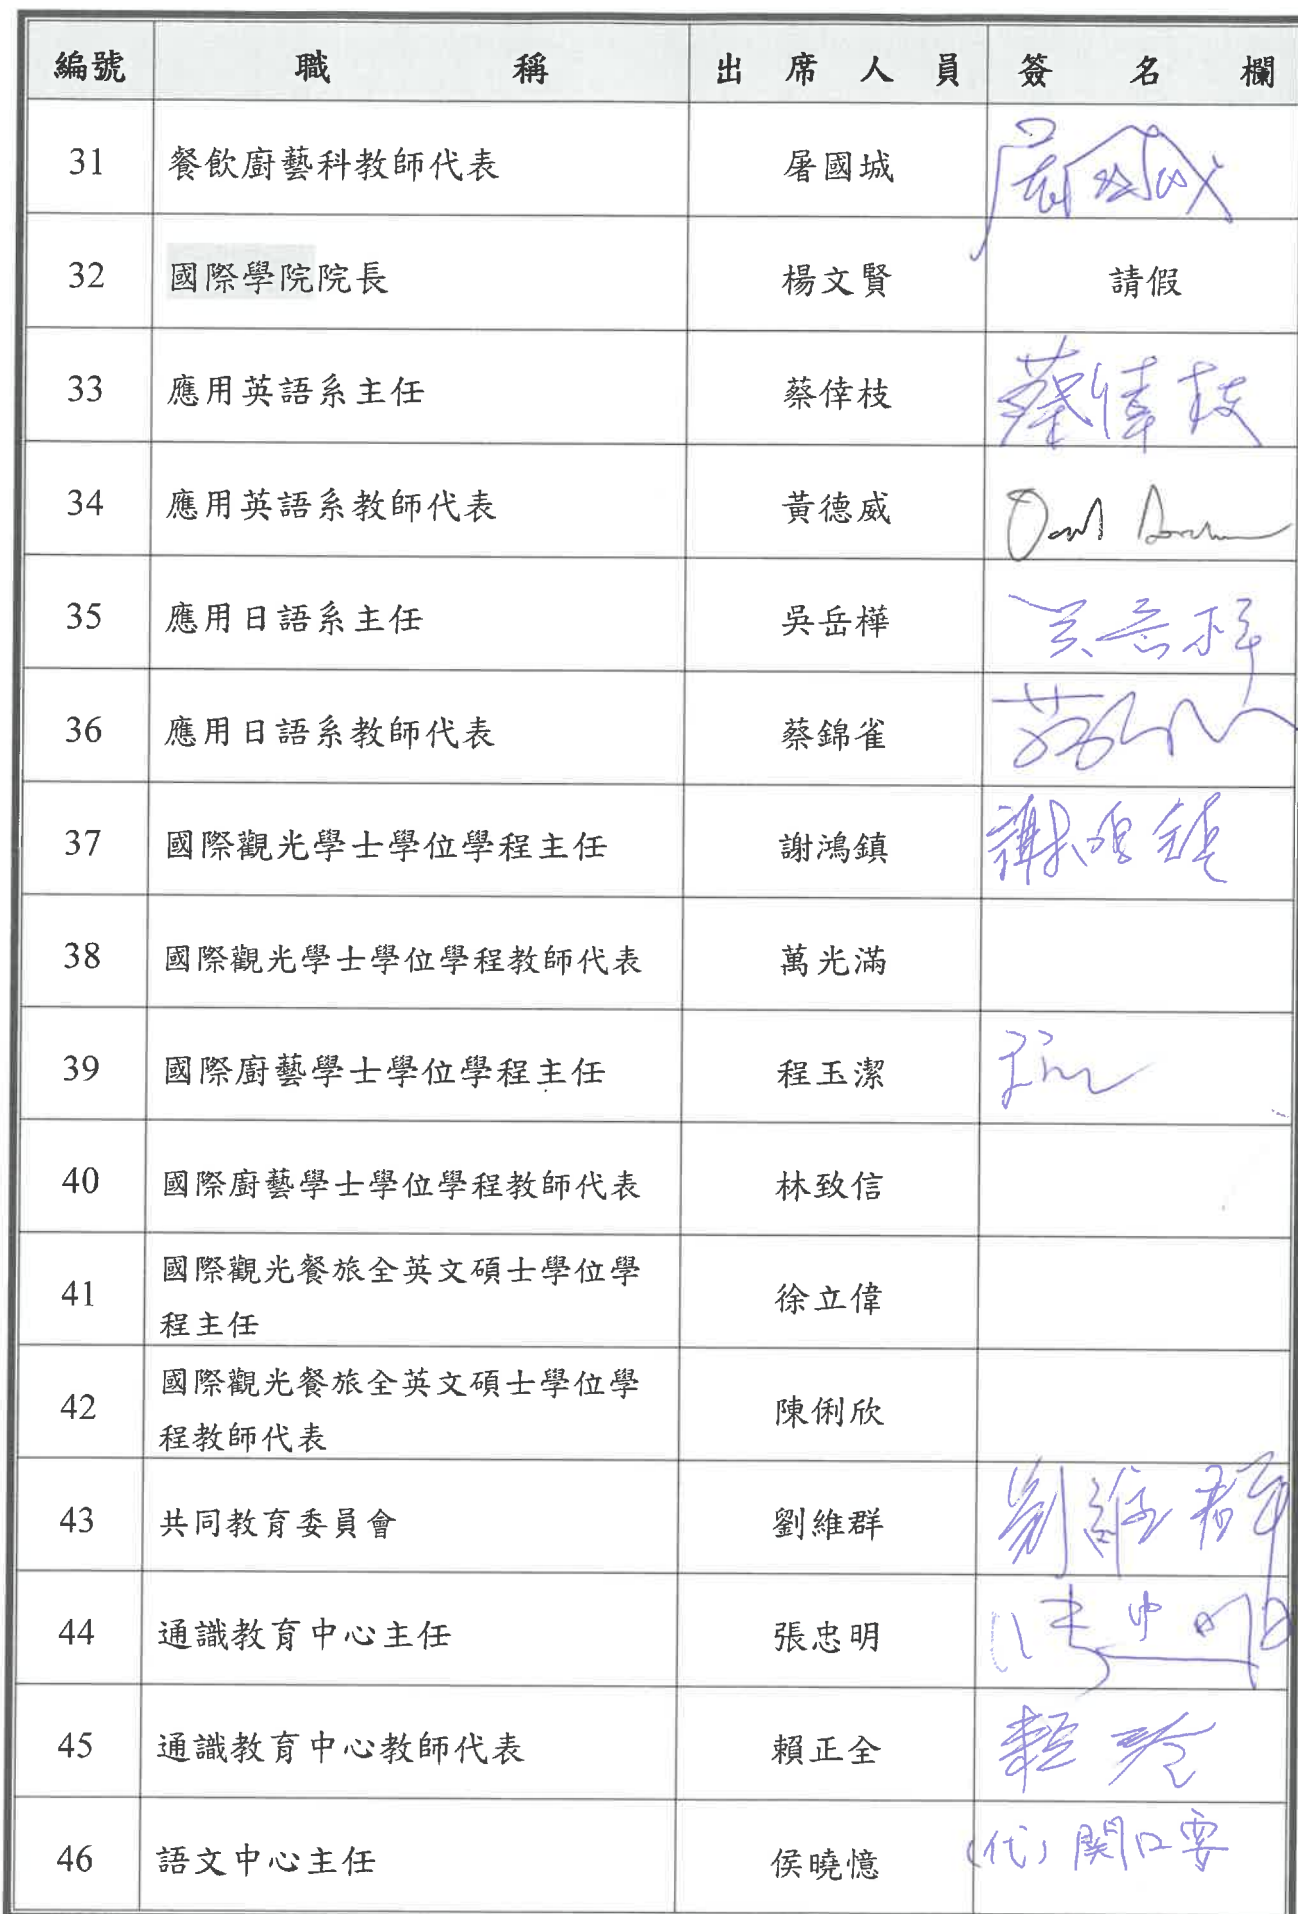 編號 職稱 出席人員 簽名欄
31 餐飲廚藝科教師代表 屠國城 屠國城
32 國際學院院長 楊文賢 請假
33 應用英語系主任 蔡倖枝 蔡倖枝
34 應用英語系教師代表 黃德威
35 應用日語系主任 吳岳樺 吳岳樺
36 應用日語系教師代表 蔡錦雀
37 國際觀光學士學位學程主任 謝鴻鎮 謝鴻鎮
38 國際觀光學士學位學程教師代表 萬光滿
39 國際廚藝學士學位學程主任 程玉潔
40 國際廚藝學士學位學程教師代表 林致信
41 國際觀光餐旅全英文碩士學位學
程主任 徐立偉
42 國際觀光餐旅全英文碩士學位學
程教師代表 陳俐欣
43 共同教育委員會 劉維群 劉維群
44 通識教育中心主任 張忠明 張忠明
45 通識教育中心教師代表 賴正全
46 語文中心主任 侯曉憶 (代)関口要